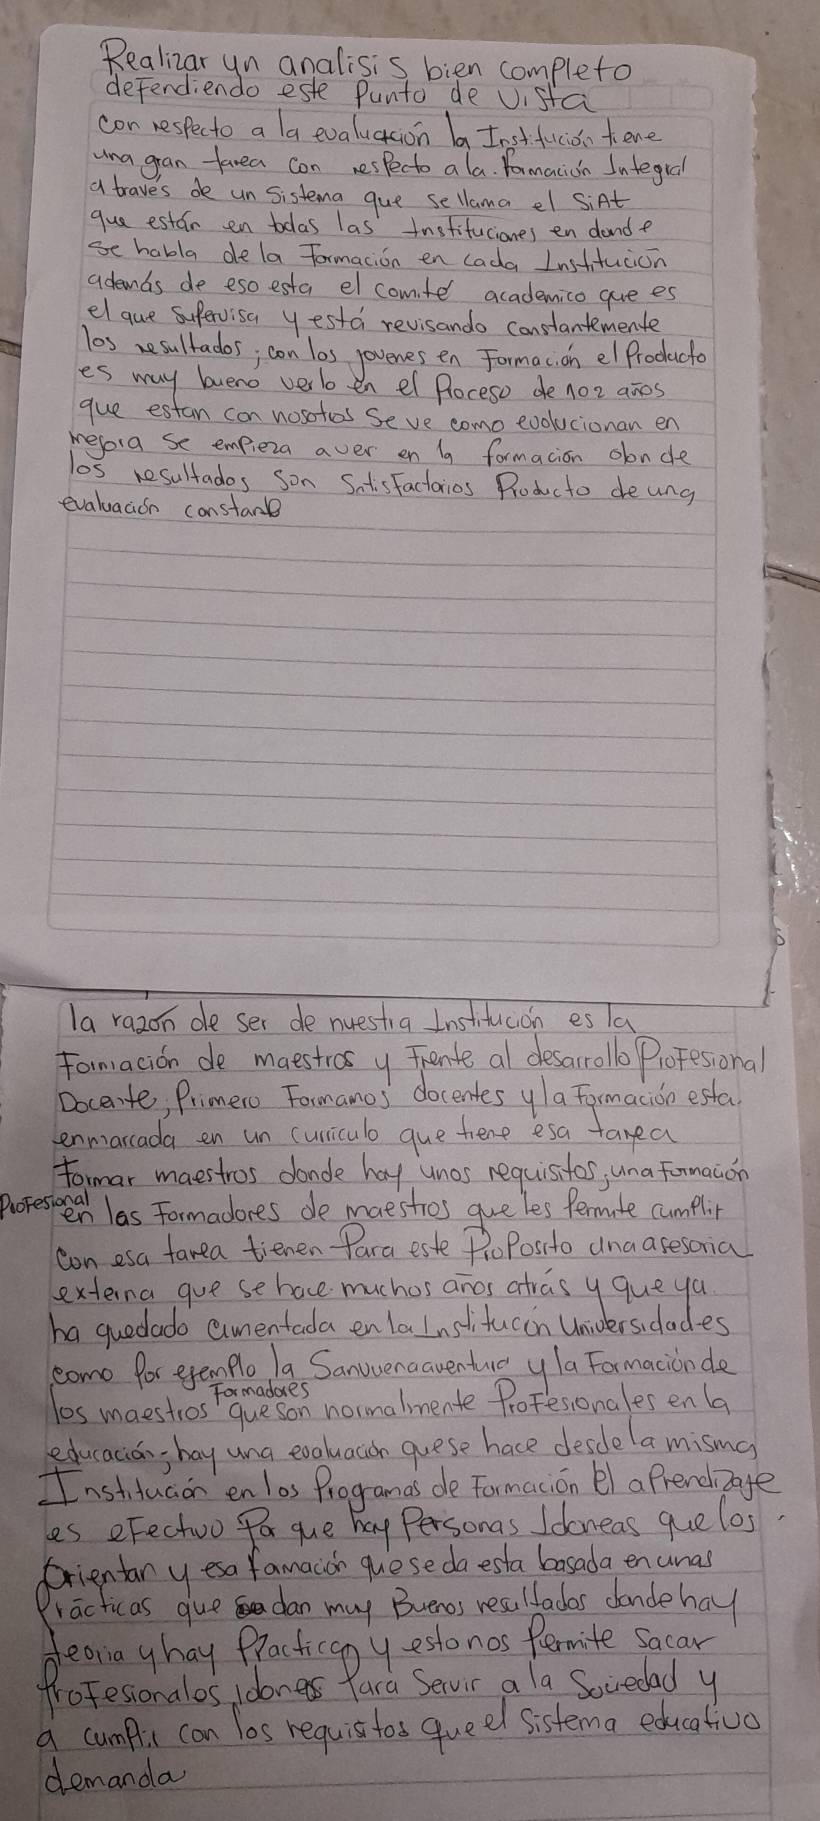 Realizar un analisis bien completo
defendiendo este Punto de Vista
con respecto a la evaluación la Institución tiene
una gran tarea con respecto a la. Formación Integral
a través de un Sistema que se llama el SiAt
que están en todas las Instituciones en donde
se habla de la Formación en cada Institución
además de eso esta el comité academico que es
el que Supervisa y está revisando constantemente
los resultados; con los jovenes en Formación el Producto
es muy bueno verlo en el Proceso de 1 o 2 años
que estan con nosotros Se ve como evolucionan en
mejora se empieza a ver en la formacion donde
los resultados son Satisfactorios Producto de una
evaluación constante
la razón de ser de nuestra Institución es la
Formación de maestros y Frente al desarrollo Profesional
Docente, Primero Formamos docentes y la Formación esta
enmarcada en un curriculo que tiene esa tarea
Formar maestros donde hay unos requisitos; una Formación
Profesional en las Formadores de maestros que les Permite cumplir
con esa tarea tienen Para este Proposito una asesoria
externa que se hace muchos años atrás y que ya
ha quedado cimentada en la Institucón Universidades
como Por ejemplo la Sanvuenaaventura y la Formación de
los maestros Formadores que son normalmente Profesionales en la
educación; hay una evaluación que se hace desde la misma
Institución en los Programas de Formación El aPrendizaje
es eFectivo Por que hay Personas Idoneas que los
Orientan y esa formación que se da esta basada en unas
Prácticas que dan muy Buenos resultados donde hay
teoria y hay Practica y esto nos Permite sacar
Profesionales idoneos Para Servir a la Sociedad y
a cumplir con los requisitos que el Sistema educativo
demanda